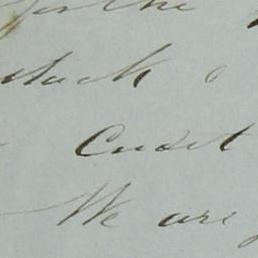 for the
attack
Cadet
We are